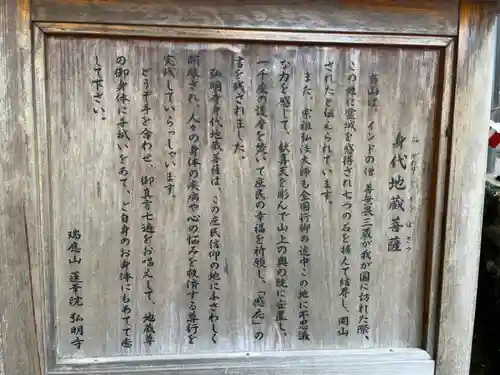 身代地蔵菩薩
みがわりじぞうぼさつ
当山は、インドの僧 善無畏三蔵が我が国に訪れた際、
この地に霊域を感得され七つの石を積んで結界し、開山
されたと伝えられています。
また、宗祖弘法大師も全国行脚の途中この地に不思議
な力を感じて、歓喜天を彫んで山上の奥の院に安置し、
一千座の護摩を焚いて庶民の幸福を祈願し、「感応」の
書を残されました。
弘明寺身代地蔵菩薩は、この庶民信仰の地にふさわしく
開眼され、人々の身体の疾病や心の悩みを救済する尊行を
実践していらっしゃいます。
どうぞ手を合わせ、御真言七遍をお唱えして、地蔵尊
の御身体に手拭いをあて、ご自身のお身体にもあてて癒
して下さい。
瑞應山 蓮華院 弘明寺